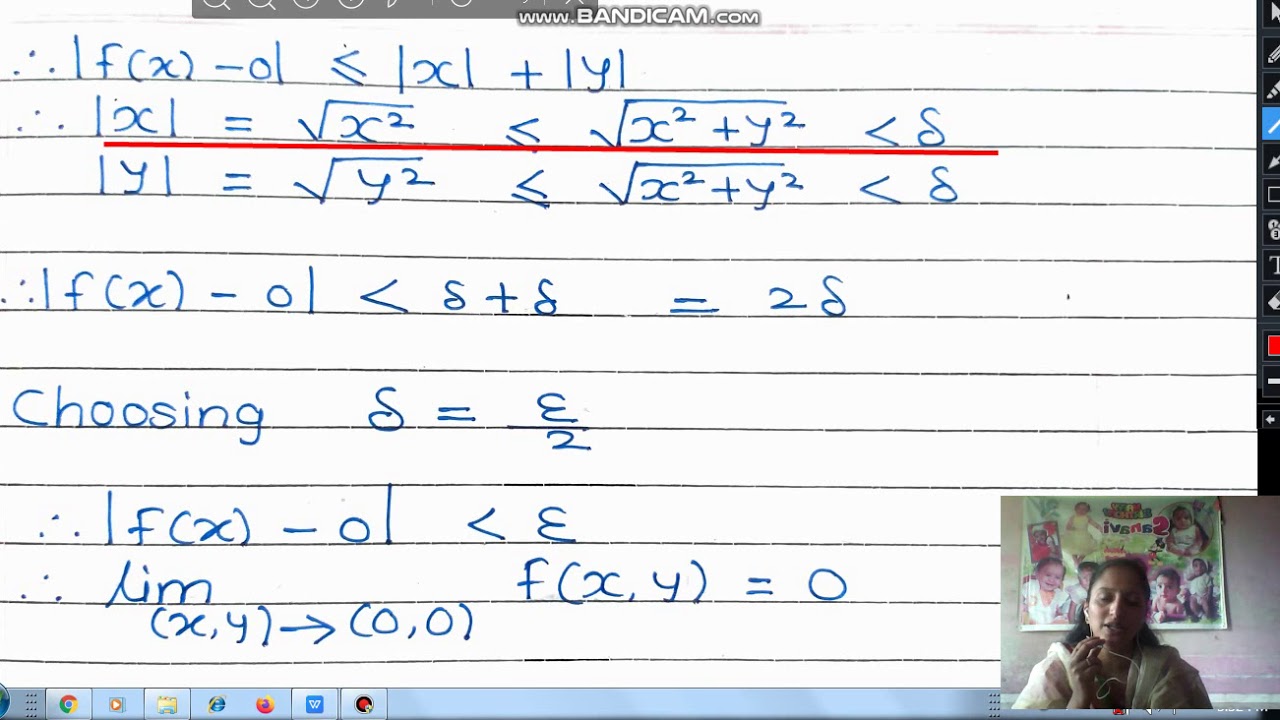 www.BANDICAM.com
∴ |f(x) - 0| ≤ |x| + |y|
∴ |x| = √x² ≤ √x² + y² < δ
|y| = √y² ≤ √x² + y² < δ
∴ |f(x) - 0| < δ + δ = 2δ
Choosing δ = ε/2
∴ |f(x) - 0| < ε
∴ lim f(x, y) = 0
(x, y) → (0, 0)
Sanavi